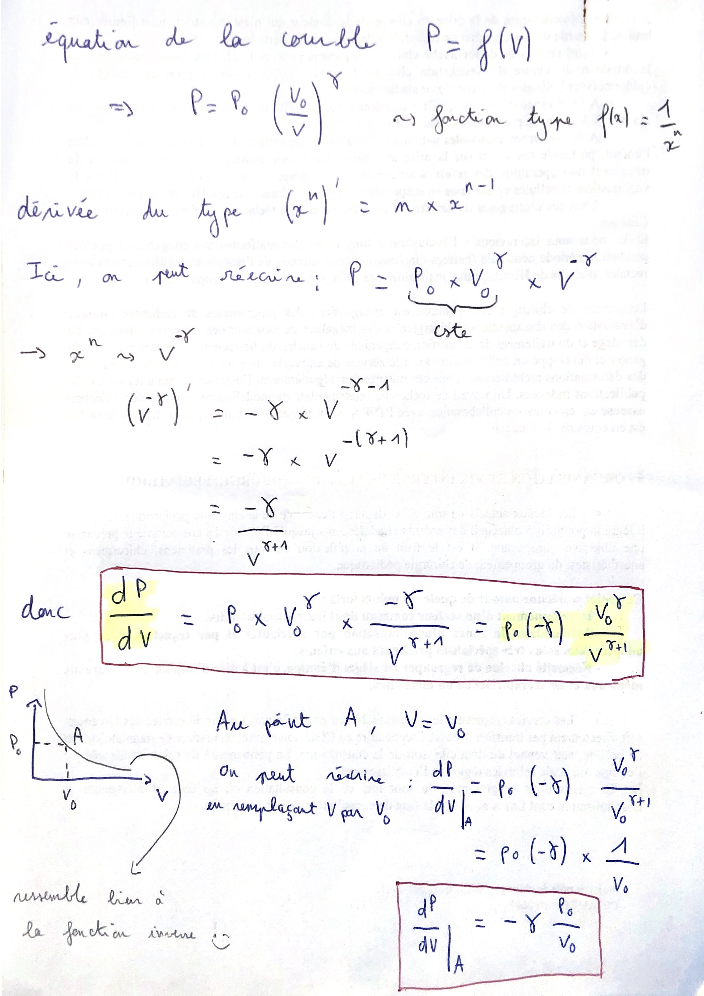 équation de la courbe P = f(V)
=> P = P₀ (V₀/V)^γ ~> fonction type f(x) = 1/x^n
dérivée du type (x^n)' = n × x^(n-1)
Ici, on peut réécrire : P = P₀ × V₀^γ × V^-γ
cste
→ x^n ~> V^-γ
(V^-γ)' = -γ × V^(-γ-1)
= -γ × V^-(γ+1)
= -γ / V^(γ+1)
donc dP/dV = P₀ × V₀^γ × -γ / V^(γ+1) = P₀ (-γ) V₀^γ / V^(γ+1)
P
P₀
A
V₀
V
Au point A, V = V₀
on peut réécrire : dP/dV|A = P₀ (-γ) V₀^γ / V₀^(γ+1)
en remplaçant V par V₀
= P₀ (-γ) × 1/V₀
dP/dV|A = -γ P₀/V₀
ressemble bien à
la fonction inverse :)